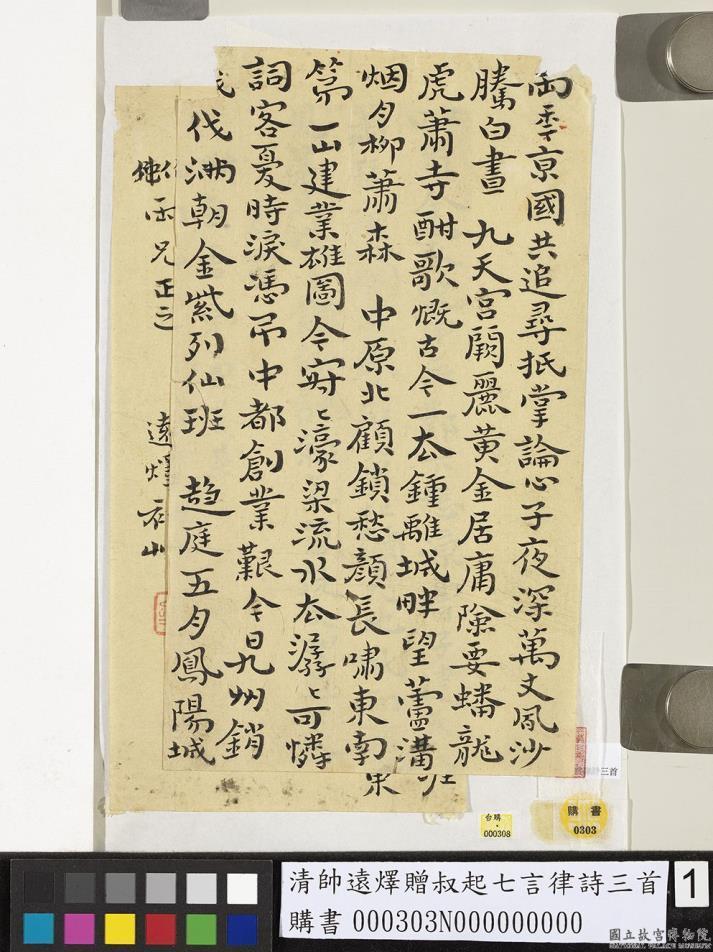 京國共追尋抵掌論心子夜深萬丈風沙
騰白晝　九天宮闕麗黃金居庸險要蟠龍
虎蕭寺酣歌慨古今一去鍾離城畔望蘆溝
烟月柳蕭森　中原北顧鎖愁顏長嘯東南
第一山建業雄圖今寂〻濠梁流水去潺〻可憐
詞客憂時淚憑弔中都創業艱今日九州銷
伐滿朝金紫列仙班　趨庭五月鳳陽城
雨兄正之
遠燡
三首
台購
000308
購書
0303
清帥遠燡贈叔起七言律詩三首
購書 000303N000000000
1
國立故宮博物院
NATIONAL PALACE MUSEUM